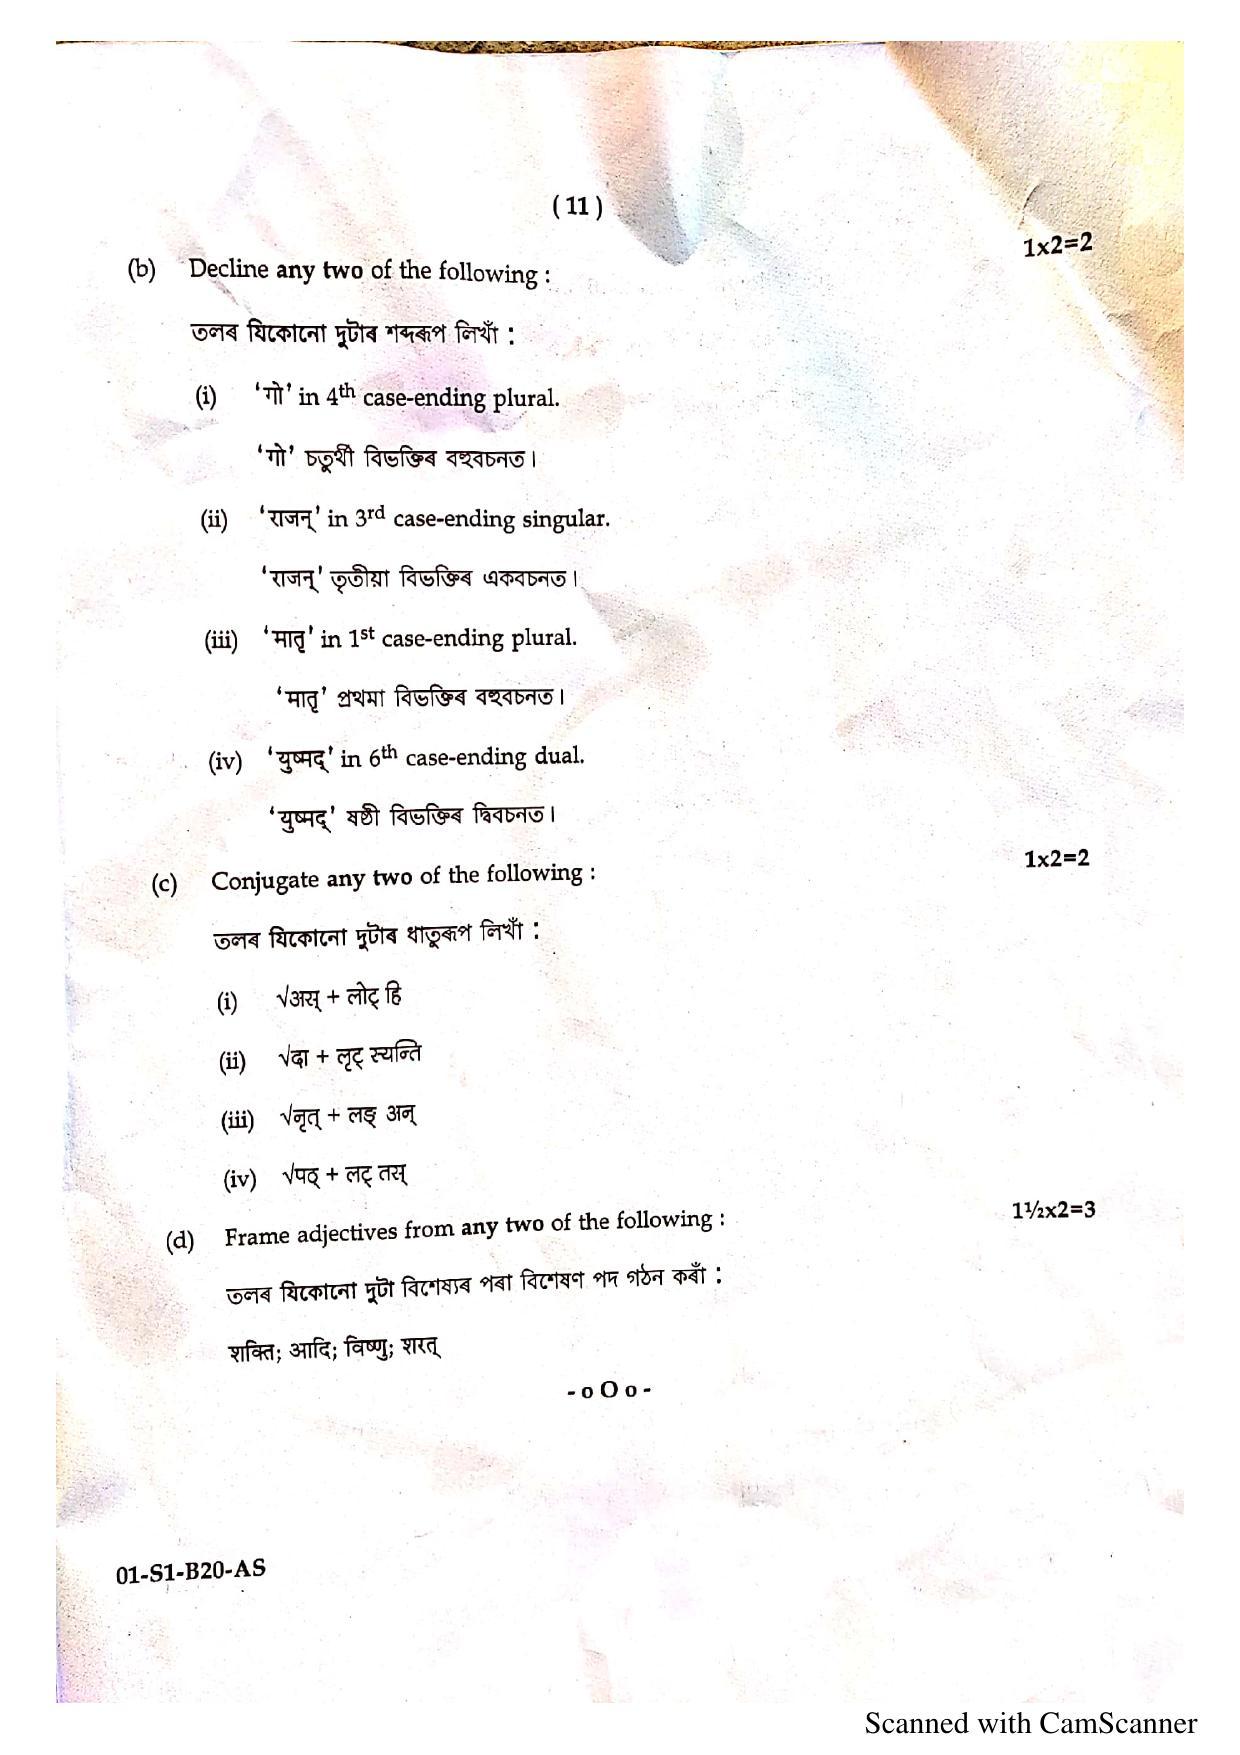 ( 11 )
1x2=2
(b) Decline any two of the following :
তলৰ যিকোনো দুটাৰ শব্দৰূপ লিখাঁ :
(i) ‘गो’ in 4th case-ending plural.
‘गो’ চতুৰ্থী বিভক্তিৰ বহুবচনত।
(ii) ‘राजन्’ in 3rd case-ending singular.
‘राजन्’ তৃতীয়া বিভক্তিৰ একবচনত।
(iii) ‘मातृ’ in 1st case-ending plural.
‘मातृ’ প্ৰথমা বিভক্তিৰ বহুবচনত।
(iv) ‘युष्मद्’ in 6th case-ending dual.
‘युष्मद्’ ষষ্ঠী বিভক্তিৰ দ্বিবচনত।
1x2=2
(c) Conjugate any two of the following :
তলৰ যিকোনো দুটাৰ ধাতুৰূপ লিখাঁ :
(i) √अस् + लोट् हि
(ii) √दा + लृट् स्यन्ति
(iii) √नृत् + लङ् अन्
(iv) √पठ् + लट् तस्
1½x2=3
(d) Frame adjectives from any two of the following :
তলৰ যিকোনো দুটা বিশেষ্যৰ পৰা বিশেষণ পদ গঠন কৰাঁ :
शक्ति; आदि; विष्णु; शरत्
- o O o -
01-S1-B20-AS
Scanned with CamScanner